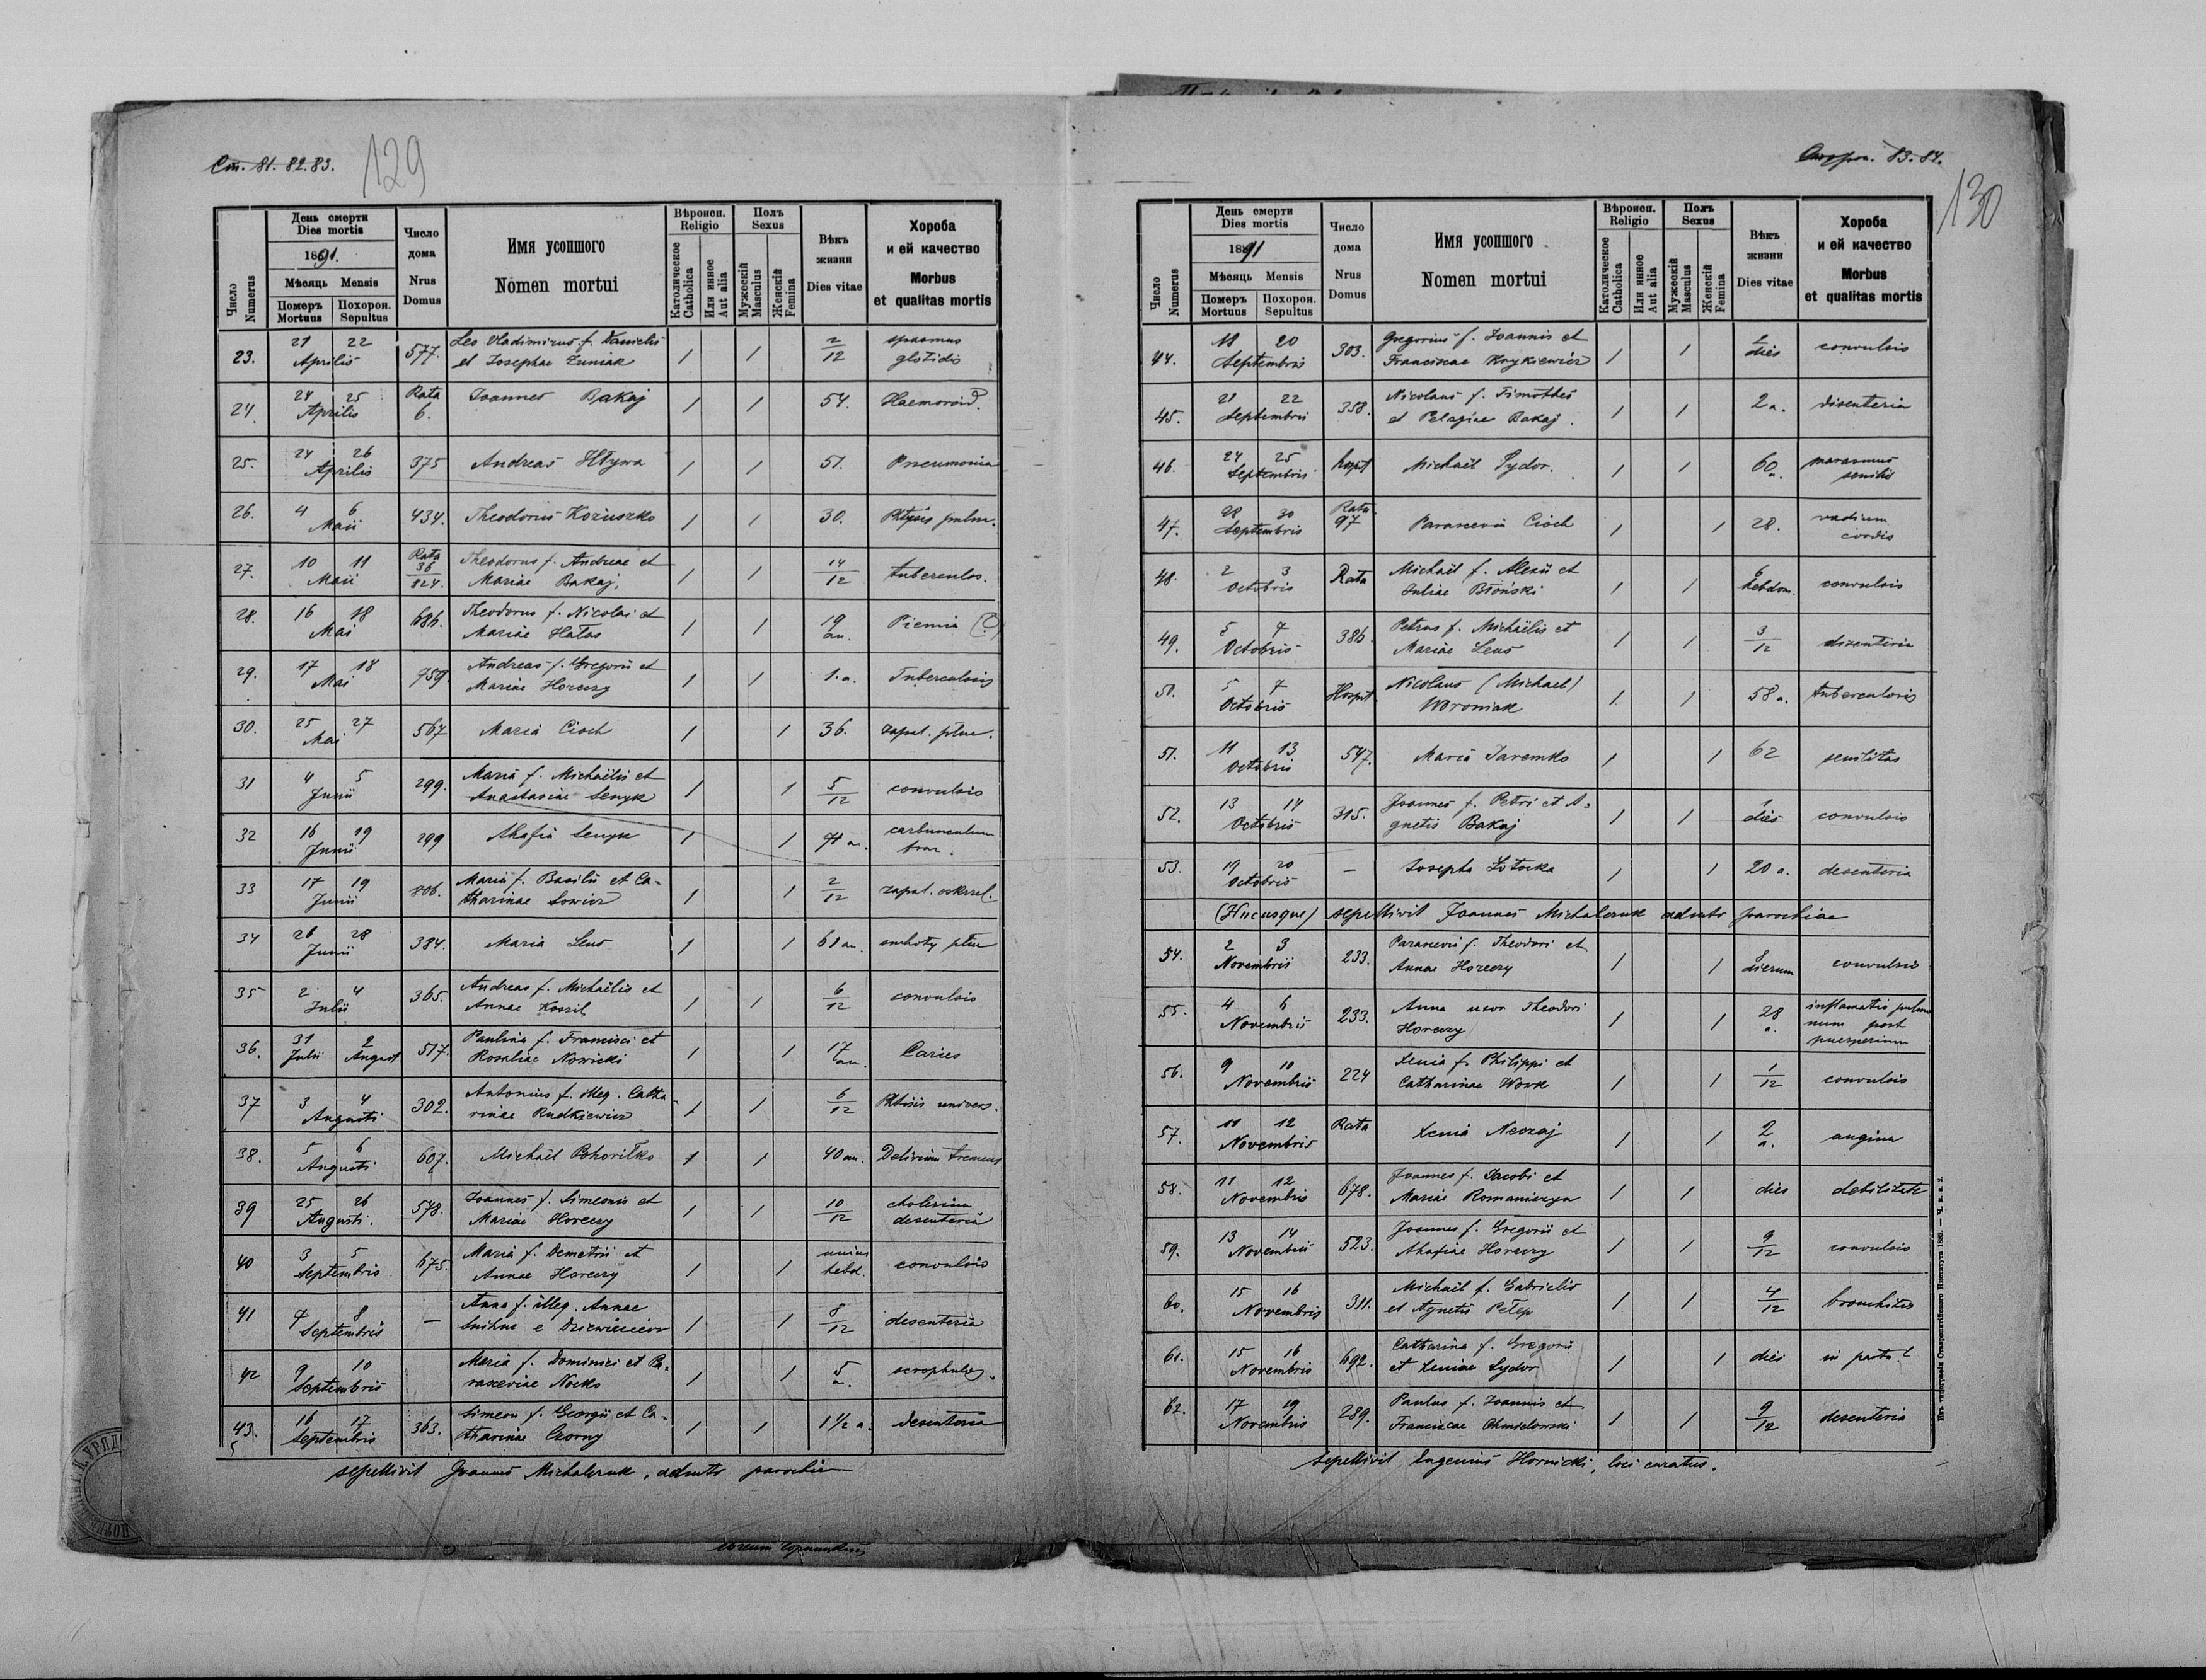 Ст. 81. 82. 83.
129
Число Numerus
День смерти Dies mortis
1891.
Мѣсяць Mensis
Померъ Mortuus
Похорон. Sepultus
Число дома Nrus Domus
Имя усопшого Nomen mortui
Вѣроисп. Religio
Католическое Catholica
Или инное Aut alia
Полъ Sexus
Мужескій Masculus
Женскій Femina
Вѣкъ жизни Dies vitae
Хороба и ей качество Morbus et qualitas mortis
23. 21 22 Aprilis 577. Leo Vladimirus f. Danielis et Josephae Zuniak 1 1 2/12 spasmus glotidis
24. 24 25 Aprilis Rata 6. Joannes Bakaj 1 1 54. Haemoroid.
25. 24 26 Aprilis 375 Andreas Hływa 1 1 51. Pneumonia
26. 4 6 Maii 434. Theodorus Kożuszko 1 1 30. Phtysis pulm.
27. 10 11 Maii Rata 36 824. Theodorus f. Andreae et Mariae Bakaj, 1 1 14/12 tuberculos.
28. 16 18 Mai 686. Theodorus f. Nicolai et Mariae Hałas 1 1 19 an. Piemia (?)
29. 17 18 Mai 759. Andreas f. Gregorii et Mariae Horeczy 1 1 1. a. Tuberculosis
30. 25 27 Mai 567 Maria Cioch 1 1 36. zapal. płuc.
31 4 5 Junii 299. Maria f. Michaëlis et Anastasiae Senyk 1 1 5/12 convulsio
32 16 19 Junii 299 Ahafia Senyk 1 1 71 a. carbunculum
33 17 19 Junii 806. Maria f. Basilii et Catharinae Sowicz 1 1 2/12 zapal. oskrzel.
34 26 28 Junii 384. Maria Leus 1 1 61 an. suchoty płuc
35 2 4 Julii 365. Andreas f. Michaëlis et Annae Koszil 1 1 6/12 convulsio
36. 31 Julii 2 August 517. Paulina f. Francisci et Rosaliae Nowicki 1 1 17 an. Caries
37 3 4 Augusti 302. Antonius f. illeg. Catharinae Rudkiewicz 1 1 6/12 Phtisis univers.
38. 5 6 Augusti 607. Michaël Pohoriłko 1 1 40 an. Delirium tremens
39 25 26 Augusti. 578. Joannes f. Simeonis et Mariae Horeczy 1 1 10/12 cholerina desenteria
40 3 5 Septembris 675. Maria f. Demetrii et Annae Horeczy 1 1 unius hebd. convulsio
41 7 8 Septembris — Anna f. illeg. Annae 1 1 8/12 desenteria
42 9 10 Septembris Maria f. Dominici et Parasceviae Nocko 1 1 5 a. scrophules.
43. 16 17 Septembris 363. Simeon f. Georgii et Catharinae Czorny 1 1 1 1/2 a. desenteria
sepellivit Joannes Michalczuk, admtr parochiae
Сторон. 83. 84.
130
Число Numerus
День смерти Dies mortis
1891
Мѣсяць Mensis
Померъ Mortuus
Похорон. Sepultus
Число дома Nrus Domus
Имя усопшого Nomen mortui
Вѣроисп. Religio
Католическое Catholica
Или инное Aut alia
Полъ Sexus
Мужескій Masculus
Женскій Femina
Вѣкъ жизни Dies vitae
Хороба и ей качество Morbus et qualitas mortis
44. 18 20 Septembris 303. Gregorius f. Joannis et Franciscae Krykiewicz 1 1 2 dies convulsio
45. 21 22 Septembris 358. Nicolaus f. Timothei et Pelagiae Bakaj. 1 1 2 a. disenteria
46. 24 25 Septembris hospt Michaël Sydor. 1 1 60 a. marasmus senilis
47. 28 30 Septembris Rata 97 Parascevia Cioch 1 1 28. vadium cordis
48. 2 3 Octobris Rata Michaël f. Alexii et Juliae Błoński 1 1 6 hebdom. convulsio
49. 5 7 Octobris 386. Petrus f. Michaëlis et Mariae Leus 1 1 3/12 disenteria
50. 5 7 Octobris Hospit. Nicolaus (Michael) Woroniak 1 1 58 a. tuberculosis
51. 11 13 Octobris 547. Maria Jaremko 1 1 62 senilitas
52. 13 14 Octobris 315. Joannes f. Petri et Agnetis Bakaj 1 1 1 dies convulsio
53. 19 20 Octobris — Josepha Złotocka 1 1 20 a. desenteria
(Hucusque) sepellivit Joannes Michalczuk admtr parochiae
54. 2 3 Novembris 233. Parascevia f. Theodori et Annae Horeczy 1 1 8 dierum convulsio
55. 4 6 Novembris 233. Anna uxor Theodori Horeczy 1 1 28 a. inflamatio pulmonum post puerperium
56. 9 10 Novembris 224 Xenia f. Philippi et Catharinae Wowk 1 1 1/12 convulsio
57. 11 12 Novembris Rata Xenia Neczaj 1 1 2 a. angina
58. 11 12 Novembris 678. Joannes f. Jacobi et Mariae Romaniczyn 1 1 dies debilitate
59. 13 14 Novembris 523. Joannes f. Gregorii et Ahafiae Horeczy 1 1 9/12 convulsio
60. 15 16 Novembris 311. Michaël f. Gabrielis et Agnetis Pełep 1 1 4/12 bronchitis
61. 15 16 Novembris 692. Catharina f. Gregorii et Xeniae Sydor 1 1 dies in partu
62. 17 19 Novembris 289. Paulus f. Joannis et Franciscae Chmielowski 1 1 9/12 desenteria
sepellivit Eugenius Hornicki, loci curatus.
Изъ типографіи Ставропигійского Института 1889. — Ч. п. л. 2.